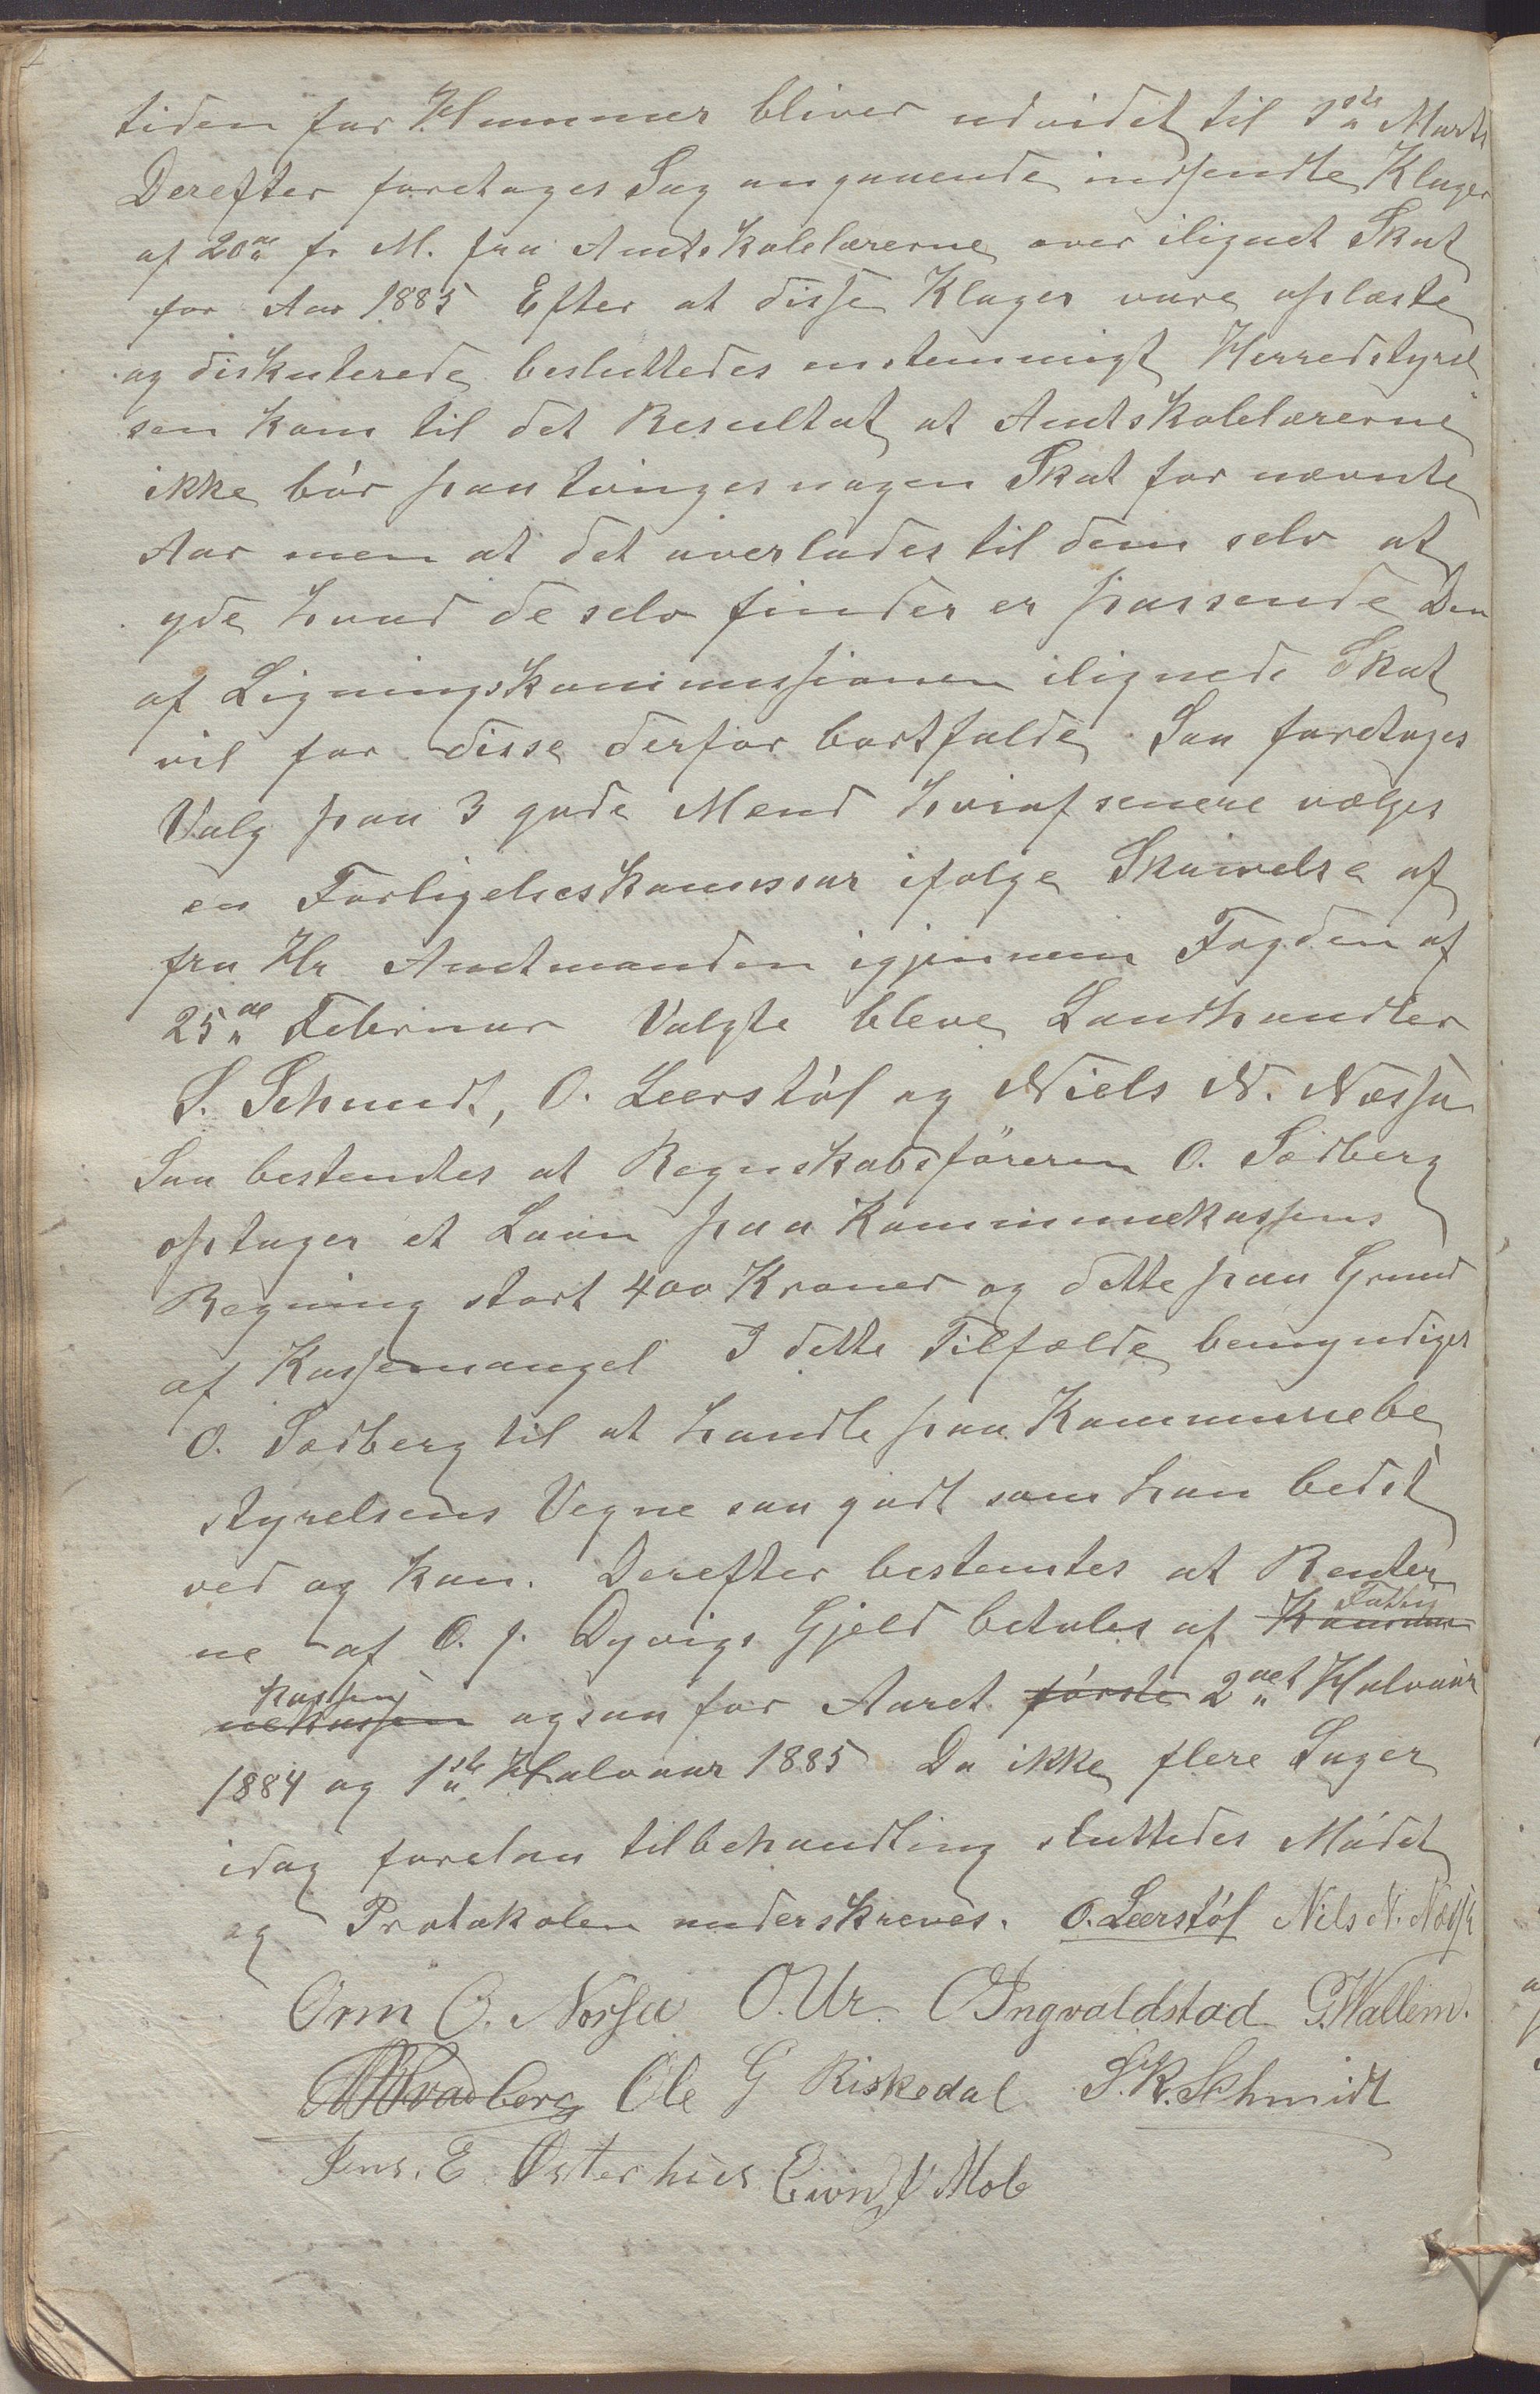 tiden for Hummer bliver udvidet til 1ste Marts
Derefter foretages Sag angaaende indsendte Klager
af 20de f. M. fra Amtskolelærerne over ilignet Skat
for Aar 1885 Efter at disse Klager vare oplæste
og diskuterede besluttedes enstemmigt Herredstyrel
sen kom til det Resultat at Amtskolelærerne
ikke bör paa tvinges nogen Skat for nævnte
Aar men at det overlades til dem selv at
yde hvad de selv finder er passende Den
af Ligningskommissionen ilignede Skat
vil for disse derfor bortfalde Saa foretages
Valg paa 3 gode Mænd hvoraf senere vælges
en Forligelseskommisær ifølge Skrivelse af
fra Hr Amtmanden igjennem Fogden af
25de Februar Valgte bleve Landhandler
S. Schmidt, O. Leerstöl og Niels N. Næssa
Saa bestemtes at Regnskabsföreren O. Södberg
optager et Laan paa Kommunekassens
Regning stort 400 Kroner og dette paa Grund
af Kassemangel I dette Tilfælde bemyndiges
O. Södberg til at handle paa Kommunebe
styrelsens Vegne saa godt som han bedst
ved og kan. Derefter bestemtes at Renter
ne af O. J. Dyvigs Gjeld betales af Kommu Fattig
nekassen kassen ogsaa for Aaret förste 2det Halvaar
1884 og 1ste Halvaar 1885 Da ikke flere Sager
idag forelaa tilbehandling sluttedes Mödet
og Protokolen underskreves. O. Leerstöl Nils N. Næssa
Orm O. Næssa O. Ur O Ingvaldstad G. Wallem.
Ole G Riskedal S. R. Schmidt
Jens. E. Østerhus Eivind J Moe